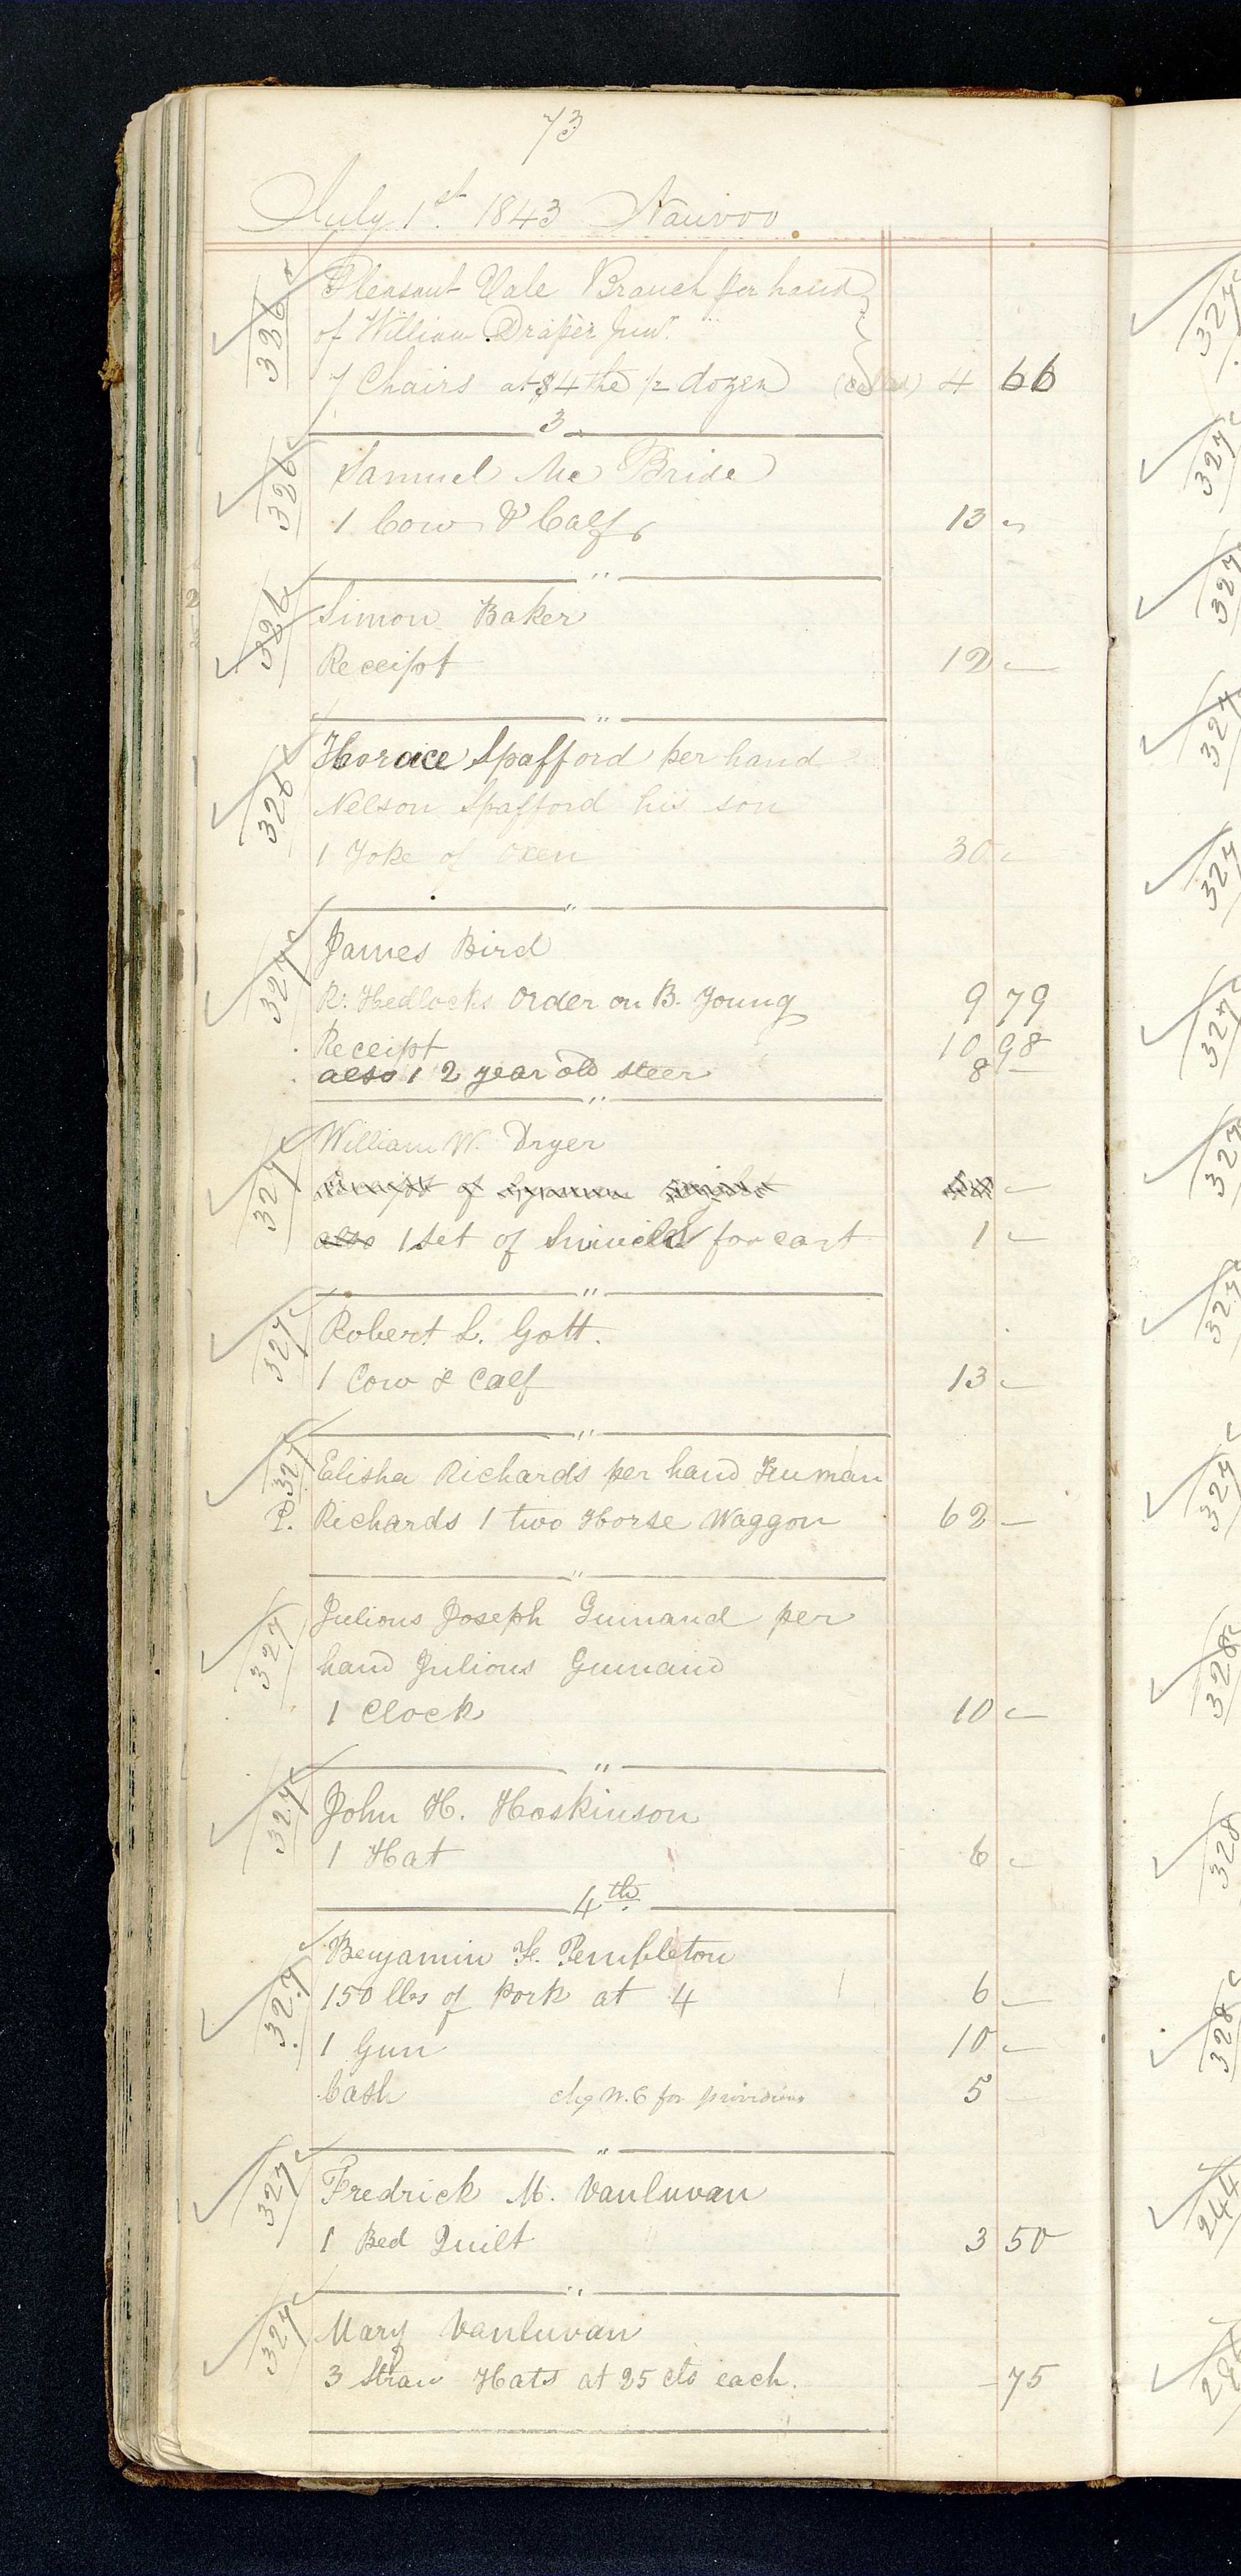 73
July 1st. 1843 Nauvoo
326
Pleasant Vale Branch per hand
of William Draper Junr.
7 Chairs at $4 the ½ dozen 4 66
3
326
Samuel Mc Bride
1 Cow & Calf 13 -
"
326
Simon Baker
Receipt 12 -
"
326
Horace Spafford per hand
Nelson Spafford his son
1 Yoke of Oxen 30 -
"
327
James Bird
R. Hedlocks Order on B. Young 9 79
Receipt 10 98
also 1 2 year old steer 8 -
"
327
William W. Dryer
Receipt of Lyman Wight -
also 1 Set of Swivels for cart 1 -
"
327
Robert L. Gott.
1 Cow & Calf 13 -
"
327
Elisha Richards per hand Truman
P. Richards 1 two Horse Waggon 62 -
"
327
Julious Joseph Guinand per
hand Julious Guinand
1 Clock 10 -
"
327
John H. Hoskinson
1 Hat 6 -
4th
327
Benjamin F. Pembleton
150 lbs of Pork at 4 6 -
1 Gun 10 -
Cash chg W. C for provisions 5 -
"
327
Fredrick M. Vanluvan
1 Bed Quilt 3 50
"
327
Mary Vanluvan
3 Straw Hats at 25 cts each. - 75
327
327
327
327
327
327
327
327
327
328
328
328
244